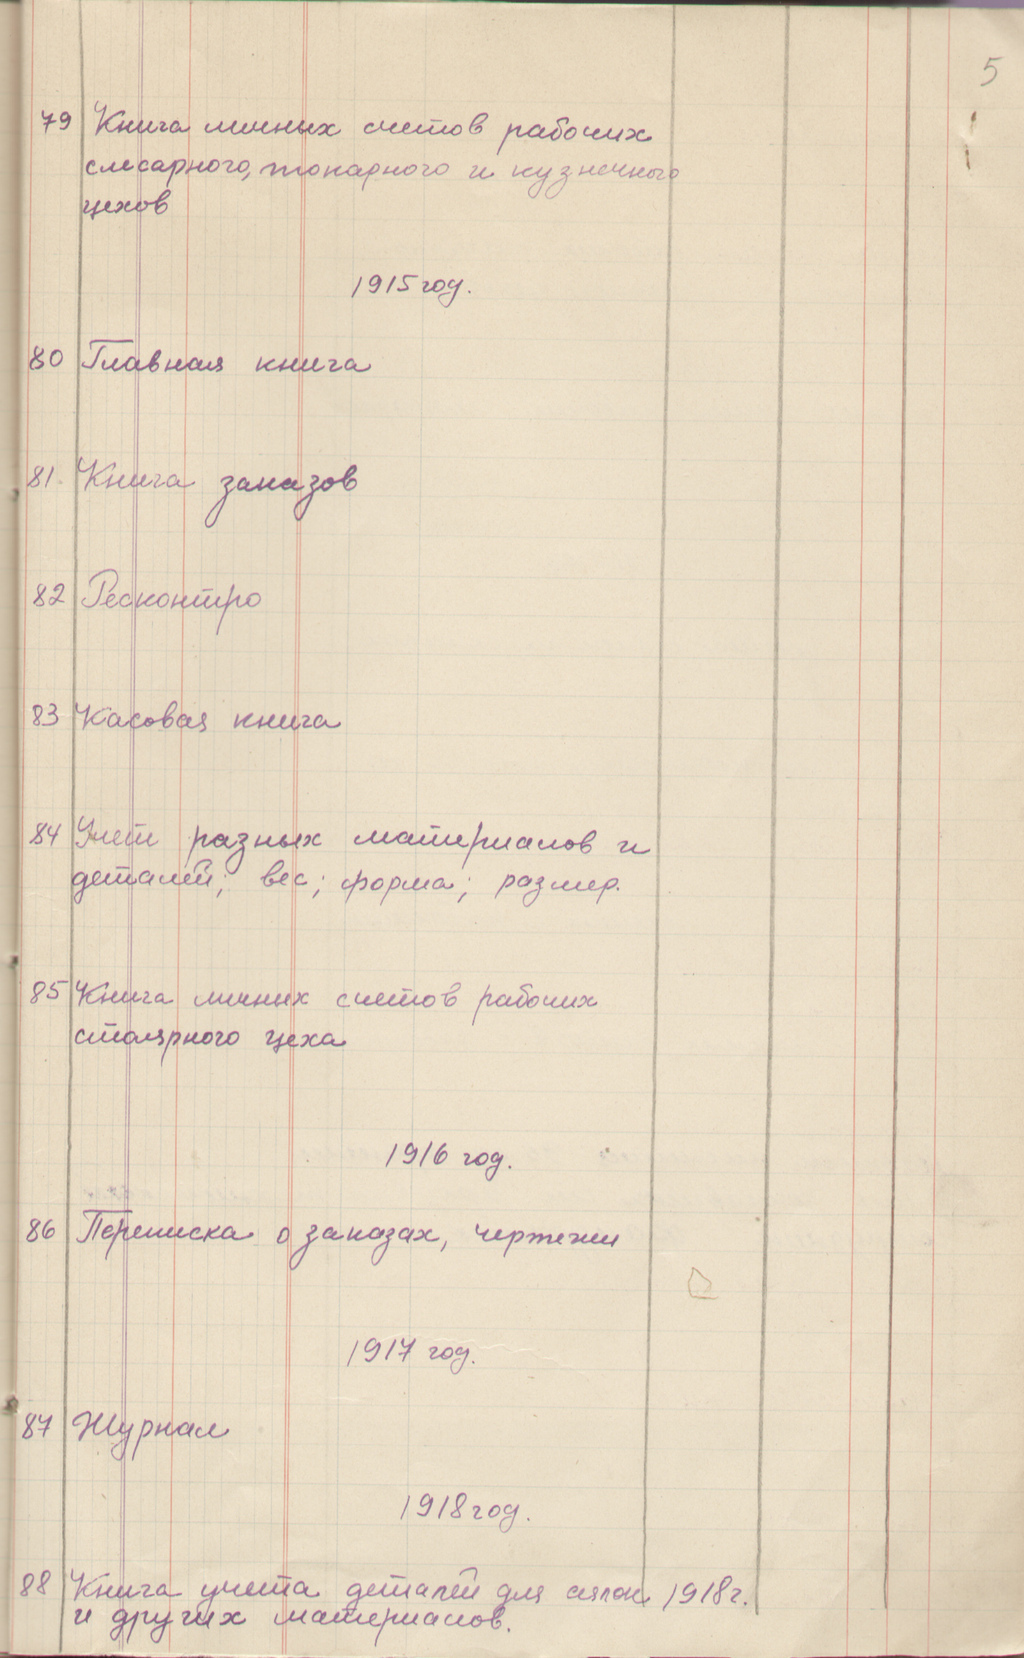 5
79 Книга личних счетов рабочих
слесарного, токарного и кузнечного
цехов
1915 год.
80 Главная книга
81. Книга заказов
82 Ресконтро
83 Касовая книга
84 Учет разных материалов и
деталей; вес; форма; размер.
85 Книга личних счетов рабочих
столярного цеха
1916 год.
86 Переписка о заказах, чертежи
1917 год.
87 Журнал
1918 год.
88 Книга учета деталей для сялок 1918 г.
и других материалов.